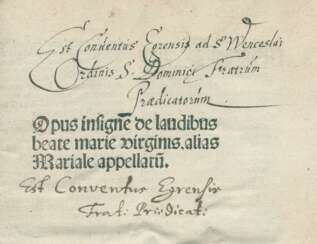 Est Conventus Egrensis ad S. Wenceslai
Ordinis S. Dominici Fratrum
Prædicatorum.
Opus insigne̅ de laudibus
beate marie virginis, alias
Mariale appellatu̅.
Est Conventus Egrensis
Frat: Prædicat: